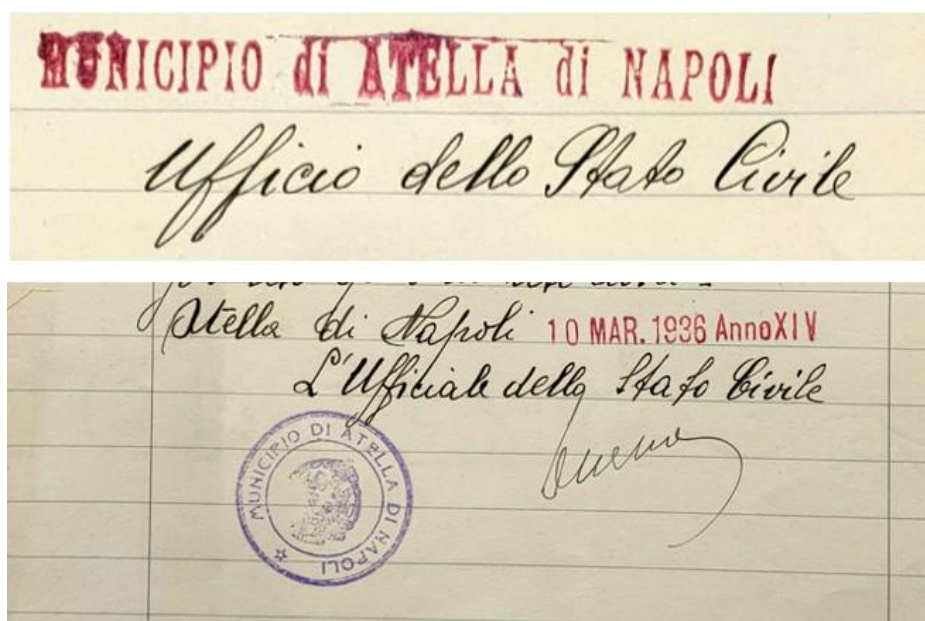 MUNICIPIO di ATELLA di NAPOLI
Ufficio dello Stato Civile
Atella di Napoli 10 MAR. 1936 Anno XIV
L'Ufficiale dello Stato Civile
MUNICIPIO DI ATELLA DI NAPOLI